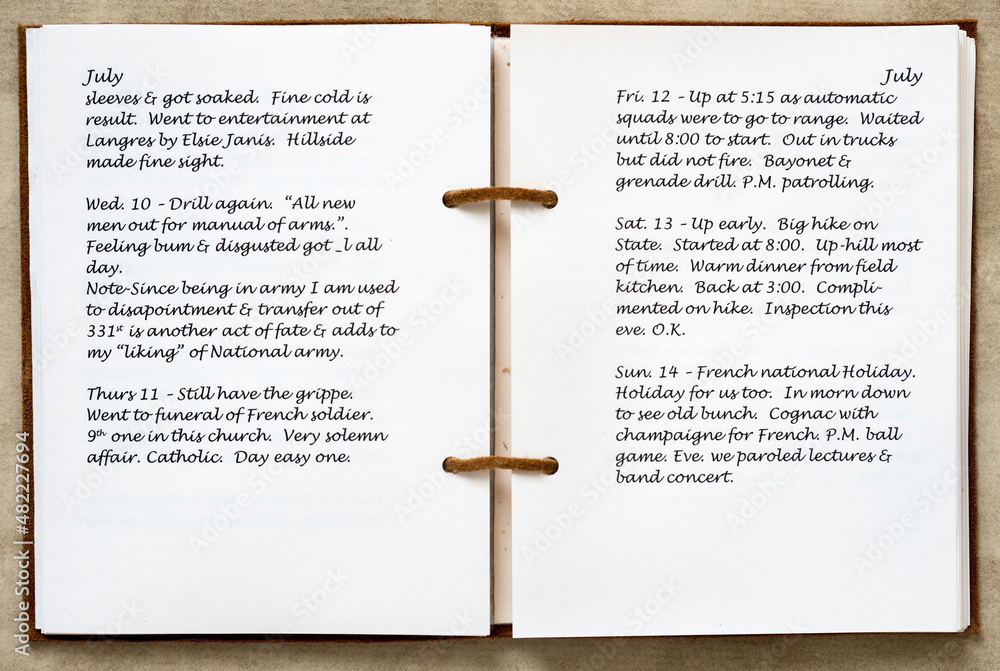 July
sleeves & got soaked.  Fine cold is
result.  Went to entertainment at
Langres by Elsie Janis.  Hillside
made fine sight.

Wed. 10 – Drill again.  “All new
men out for manual of arms.”.
Feeling bum & disgusted got _l all
day.
Note-Since being in army I am used
to disapointment & transfer out of
331st is another act of fate & adds to
my “liking” of National army.

Thurs 11 – Still have the grippe.
Went to funeral of French soldier.
9th one in this church.  Very solemn
affair. Catholic.  Day easy one.

July
Fri. 12 – Up at 5:15 as automatic
squads were to go to range.  Waited
until 8:00 to start.  Out in trucks
but did not fire.  Bayonet &
grenade drill. P.M. patrolling.

Sat. 13 – Up early.  Big hike on
State.  Started at 8:00.  Up-hill most
of time.  Warm dinner from field
kitchen.  Back at 3:00.  Compli-
mented on hike.  Inspection this
eve. O.K.

Sun. 14 – French national Holiday.
Holiday for us too.  In morn down
to see old bunch.  Cognac with
champaigne for French. P.M. ball
game. Eve. we paroled lectures &
band concert.

Adobe Stock | #482227694